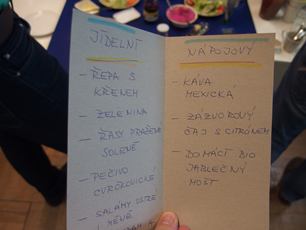 JÍDELNÍ
– ŘEPA S
KŘENEM
– ZELENINA
– ŘASY PRAŽENÉ
SOLENÉ
– PEČIVO
– SALÁMY OSTRÉ
I MÉNĚ
NÁPOJOVÝ
– KÁVA
MEXICKÁ
– ZÁZVOROVÝ
ČAJ S CITRÓNEM
– DOMÁCÍ BIO
JABLEČNÝ
MOŠT